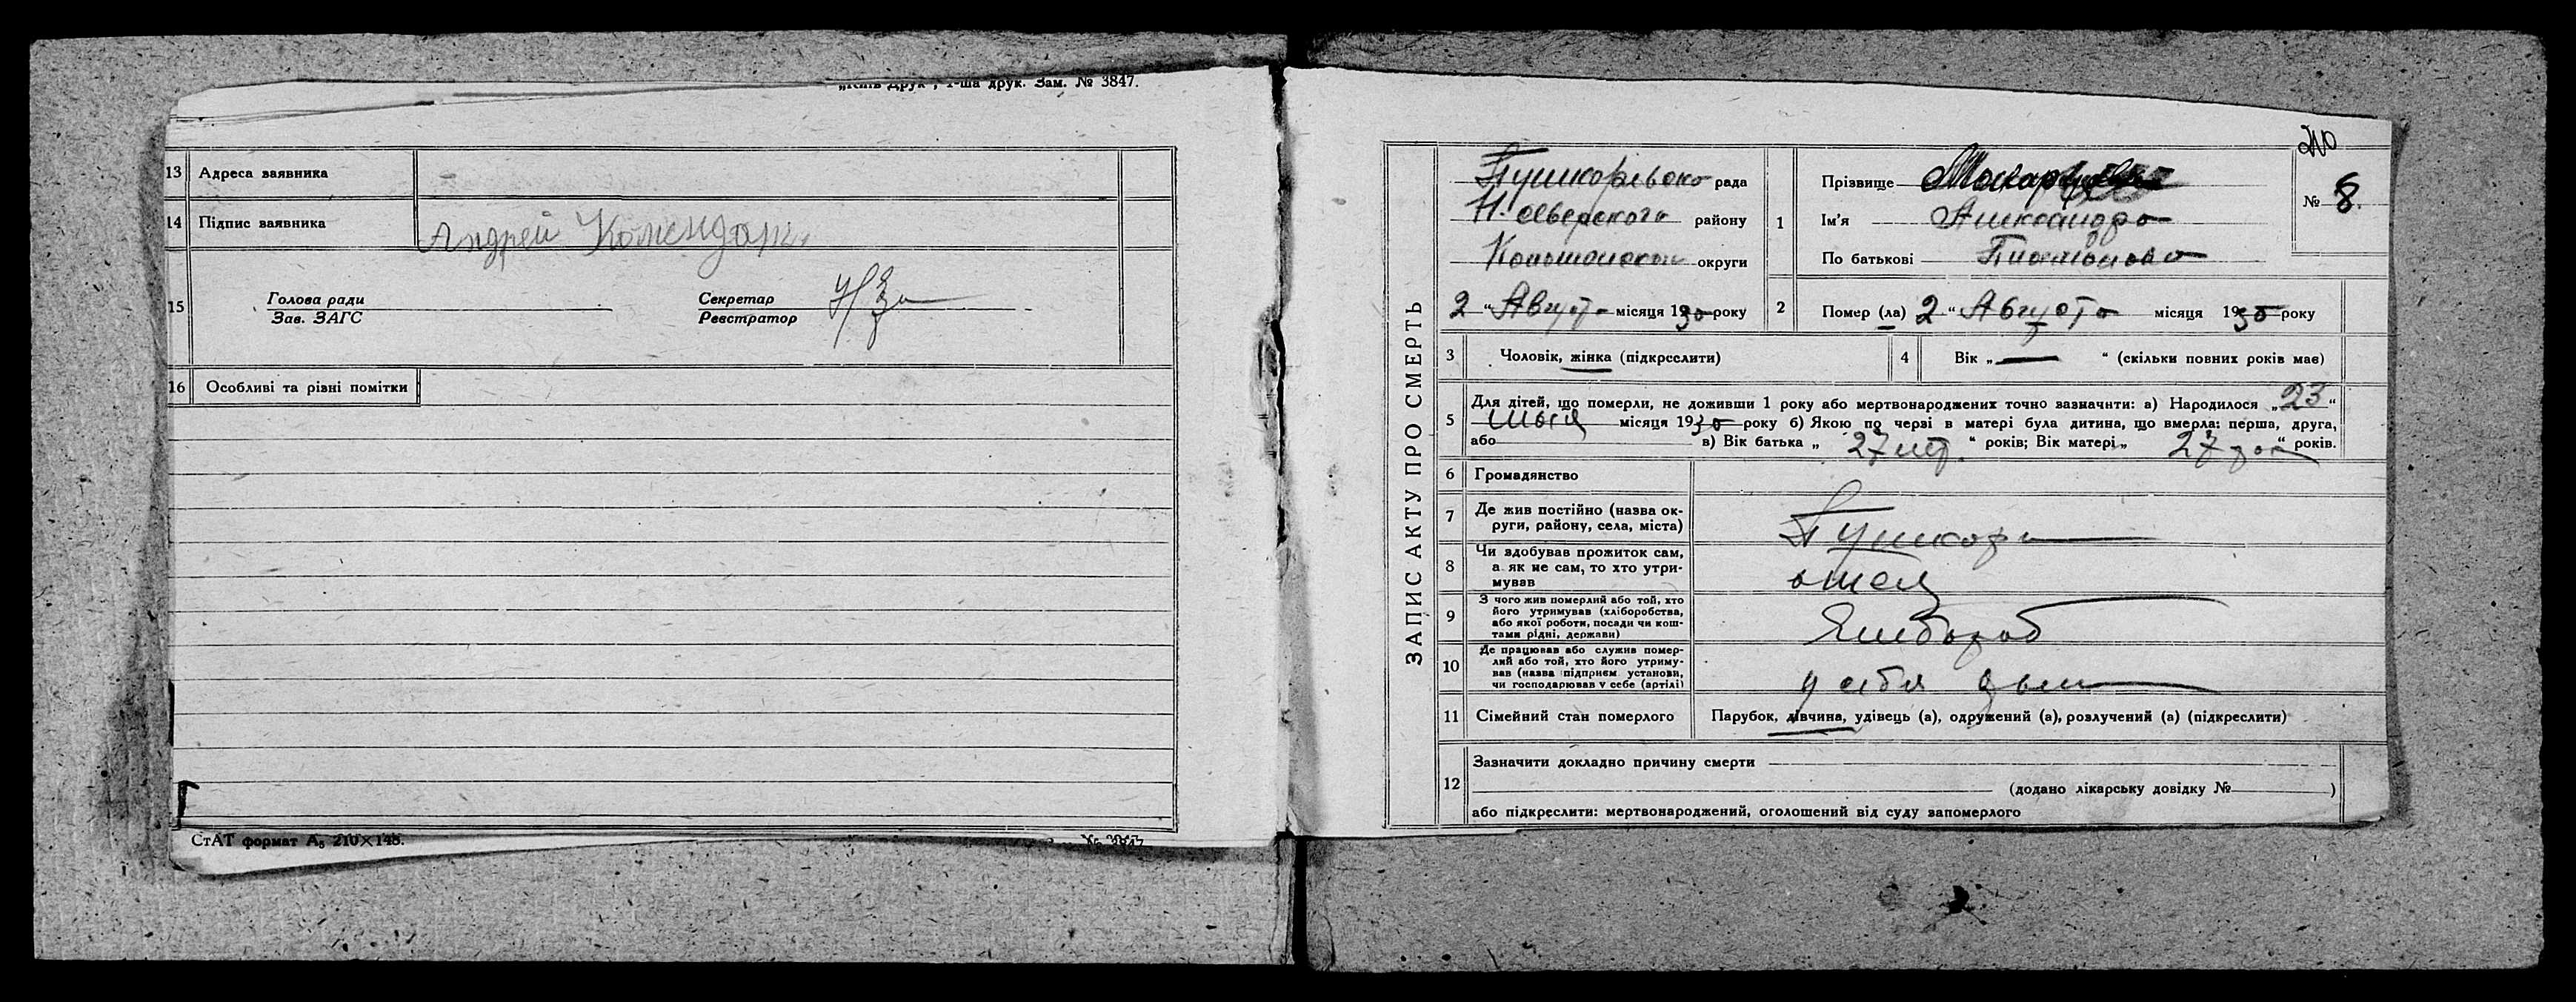 „Київ Друк", 1-ша друк. Зам. № 3847.
13 Адреса заявника
14 Підпис заявника Андрей
15 Голова ради Секретар
Зав. ЗАГС Реєстратор
16 Особливі та різні помітки
СтАТ формат А₅ 210×148.
№ 3847
ЗАПИС АКТУ ПРО СМЕРТЬ
рада
Н. Северского району
округи
2 „ Августа місяця 1930 року
1 Прізвище
Ім'я Александра
По батькові
№ 8.
2 Помер (ла) 2 „ Августа місяця 1930 року
3 Чоловік, жінка (підкреслити)
4 Вік „ — " (скільки повних років має)
5 Для дітей, що померли, не доживши 1 року або мертвонароджених точно зазначити: а) Народилося „ 23 "
місяця 1930 року б) Якою по черзі в матері була дитина, що вмерла: перша, друга,
або в) Вік батька „ 27 " років; Вік матері „ 27 " років.
6 Громадянство
7 Де жив постійно (назва ок-
руги, району, села, міста)
Пушкари
8 Чи здобував прожиток сам,
а як не сам, то хто утри-
мував
отец
9 З чого жив померлий або той, хто
його утримував (хліборобства,
або якої роботи, посади чи кош-
тами рідні, держави)
Хлебороб
10 Де працював або служив помер-
лий або той, хто його утриму-
вав (назва підприєм установи,
чи господарював у себе (артілі)
у себя дом
11 Сімейний стан померлого Парубок, дівчина, удівець (а), одружений (а), розлучений (а) (підкреслити)
12 Зазначити докладно причину смерти
(додано лікарську довідку № )
або підкреслити: мертвонароджений, оголошений від суду запомерлого